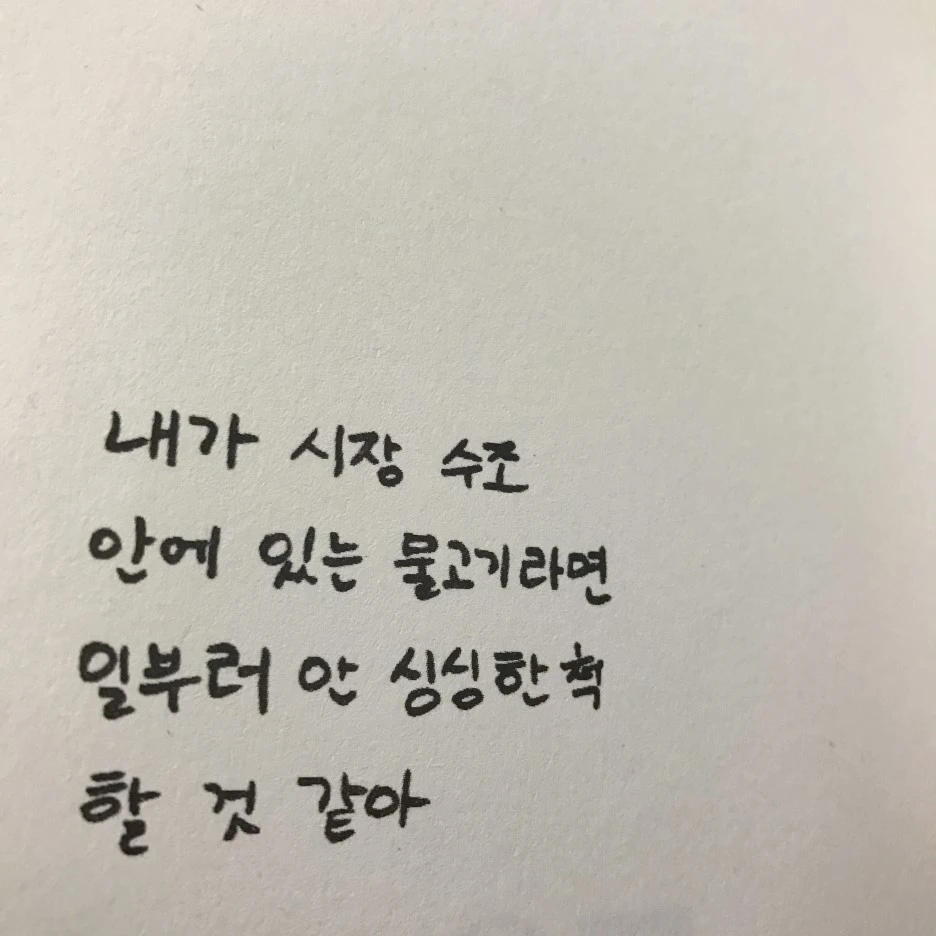 내가 시장 수조
안에 있는 물고기라면
일부러 안 싱싱한 척
할 것 같아